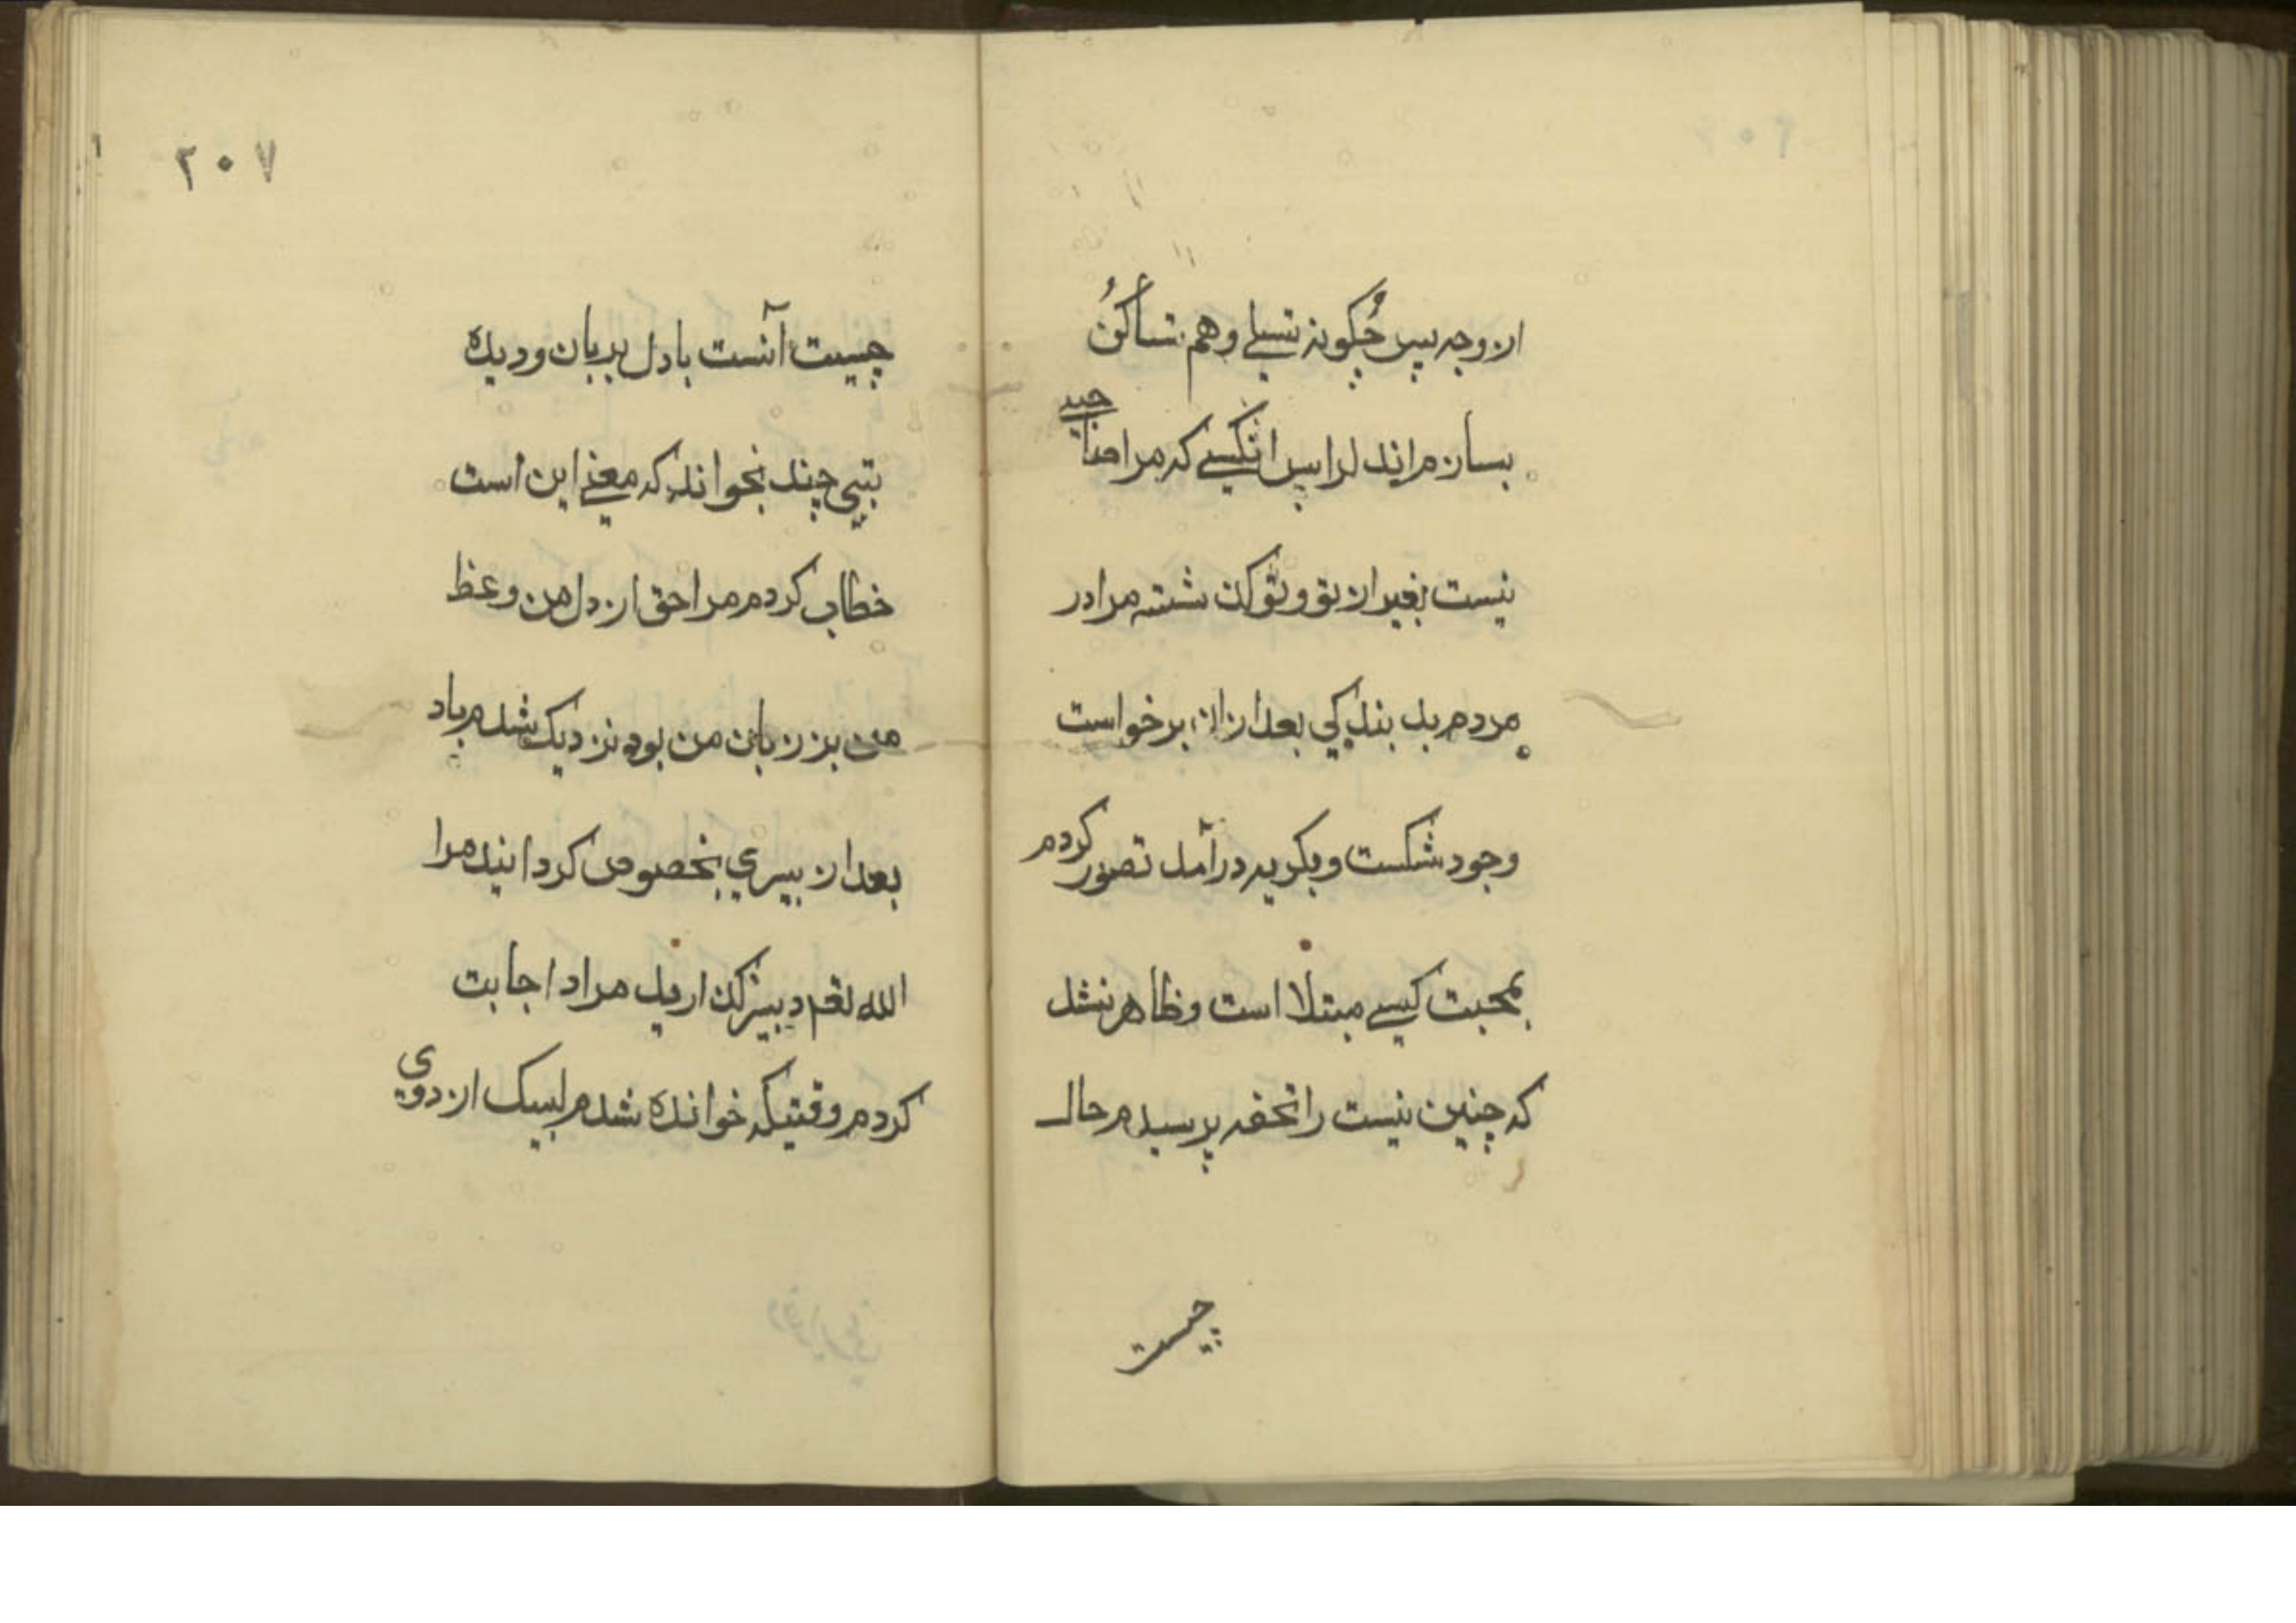 از وجه پس چگونه تسلے وهم تسأکن
بسازم اند لراپس انکسے که مرا مناجیے
نیست بغیر از تو و توکن شسته مرا در
مردم بد بندکي بعد ازان برخواست
وجود شکست و بکریه درآمد تصور کردم
بمحبت کیسے مبتلا است و ظاهر نشد
که چنین نیست را تحفه پرسیدم حال
چیست
۲۰۷
چیست آنست با دل بریان و دیده
بتیی چند بخواند که معنے این است
خطاب کردم مرا حق از دل من وعظ
من بز زبان من بود نزدیک شدم باد
بعد از بیسري بخصوص کردانید مرا
الله تعم دبیزکن اردیل مراد اجابت
کردم وقتیکه خوانده شدم لبیک از دوي